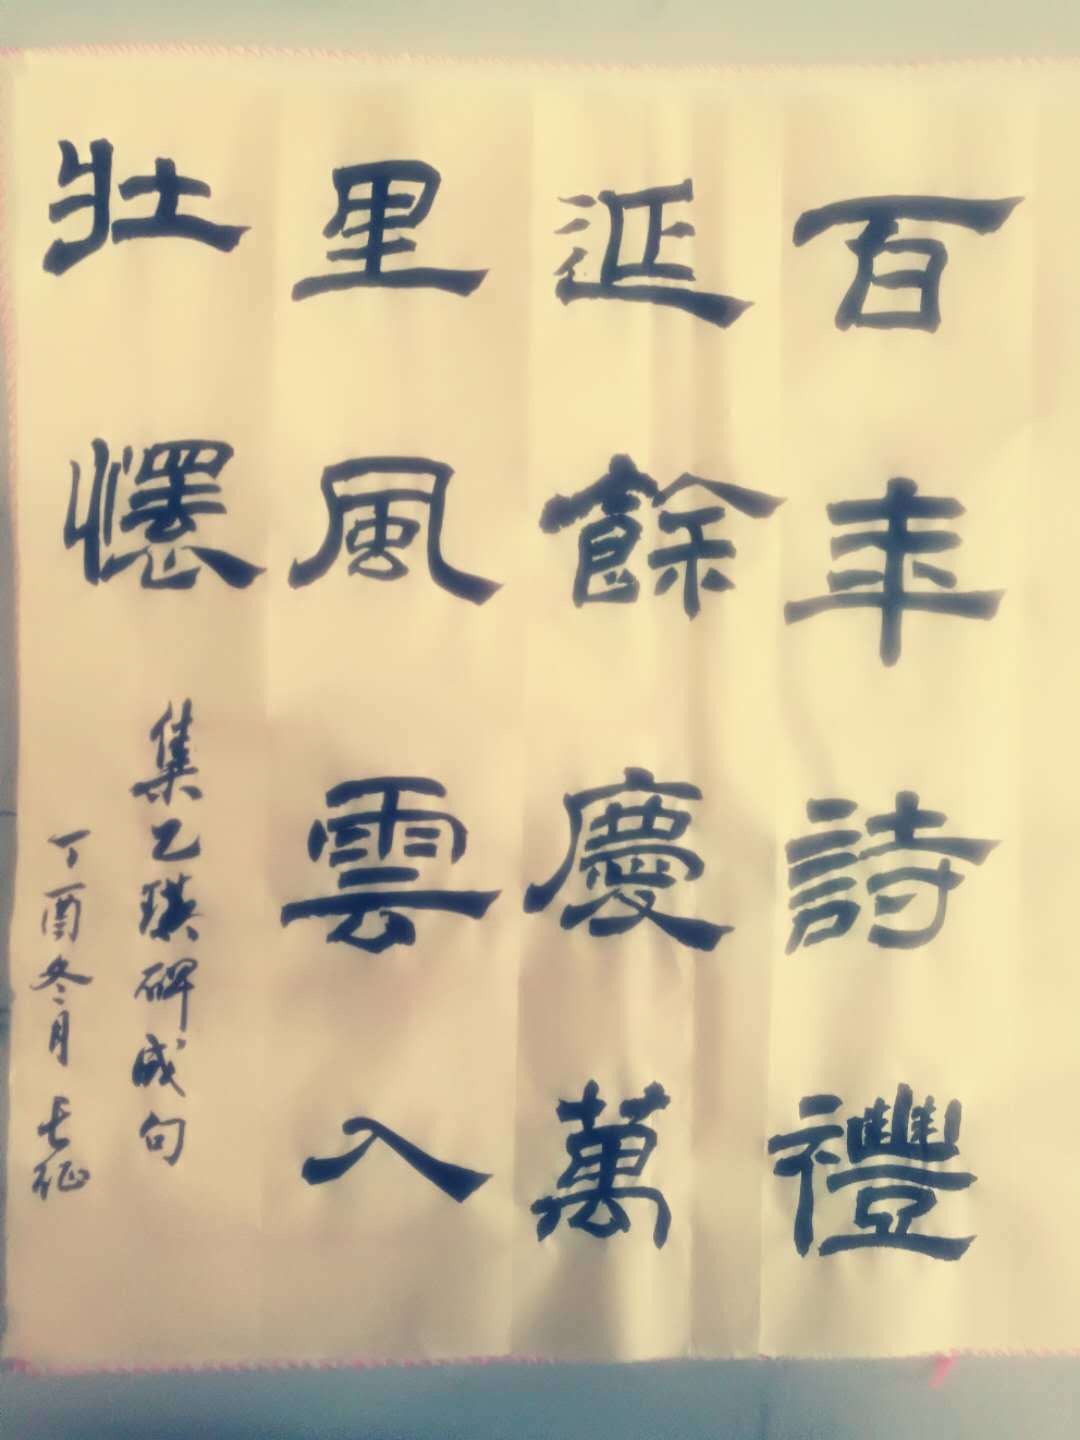 百年詩禮
延餘慶萬
里風雲入
壯懷
集乙瑛碑成句
丁酉冬月长征